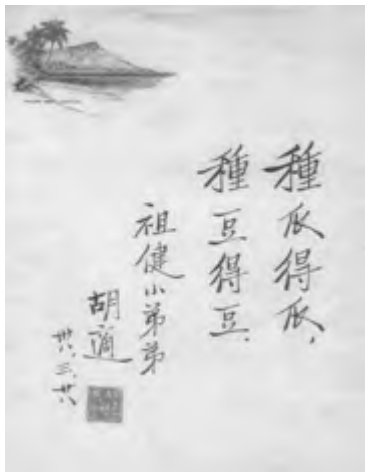 種瓜得瓜，
種豆得豆．
祖健小弟弟
胡適
卅八、三、廿八